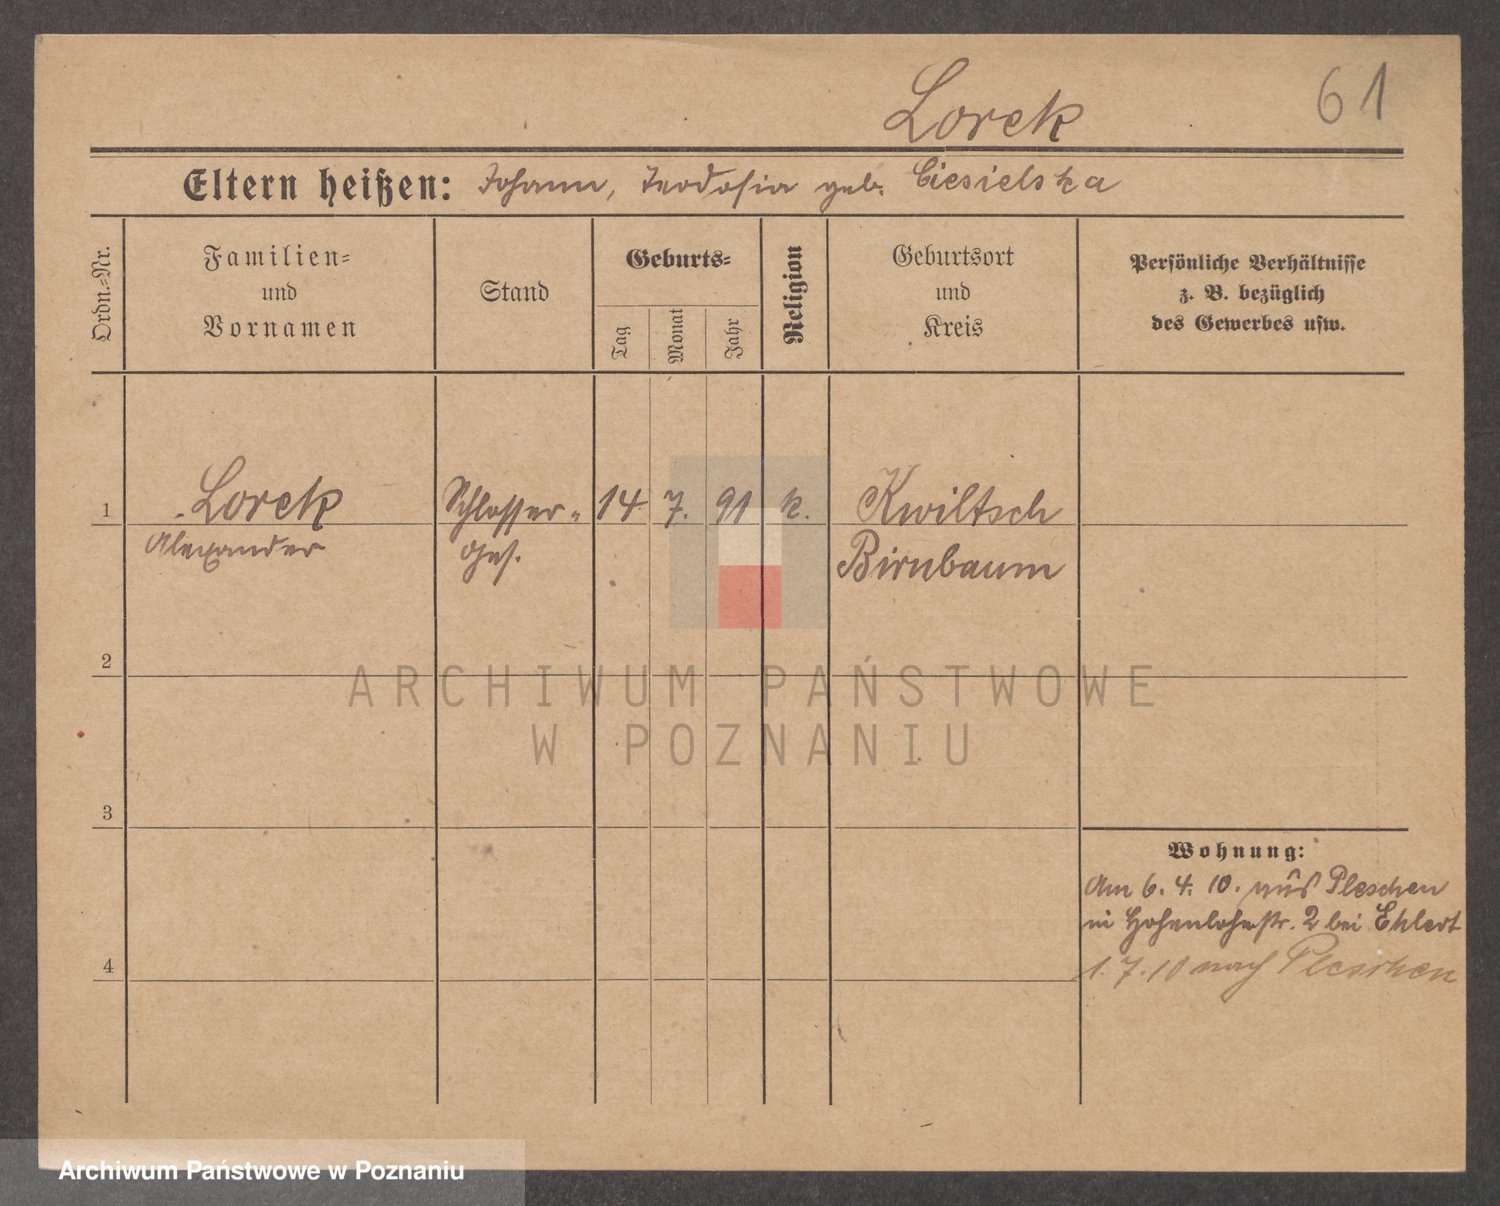 Lorek
61
Eltern heißen: Johann, Teodosia geb. Ciesielska
Ordn.-Nr.
Familien-
und
Vornamen
Stand
Geburts-
Tag
Monat
Jahr
Religion
Geburtsort
und
Kreis
Persönliche Verhältnisse
z. B. bezüglich
des Gewerbes usw.
1 Lorek Schlosser- 14 7. 91 k. Kwiltsch
Alexander Ges. Birnbaum
2
ARCHIWUM PAŃSTWOWE
W POZNANIU
3
Wohnung:
Am 6. 4. 10. aus Pleschen
in Hohenlohestr. 2 bei Ehlert
4
1. 7. 10 nach Pleschen
Archiwum Państwowe w Poznaniu